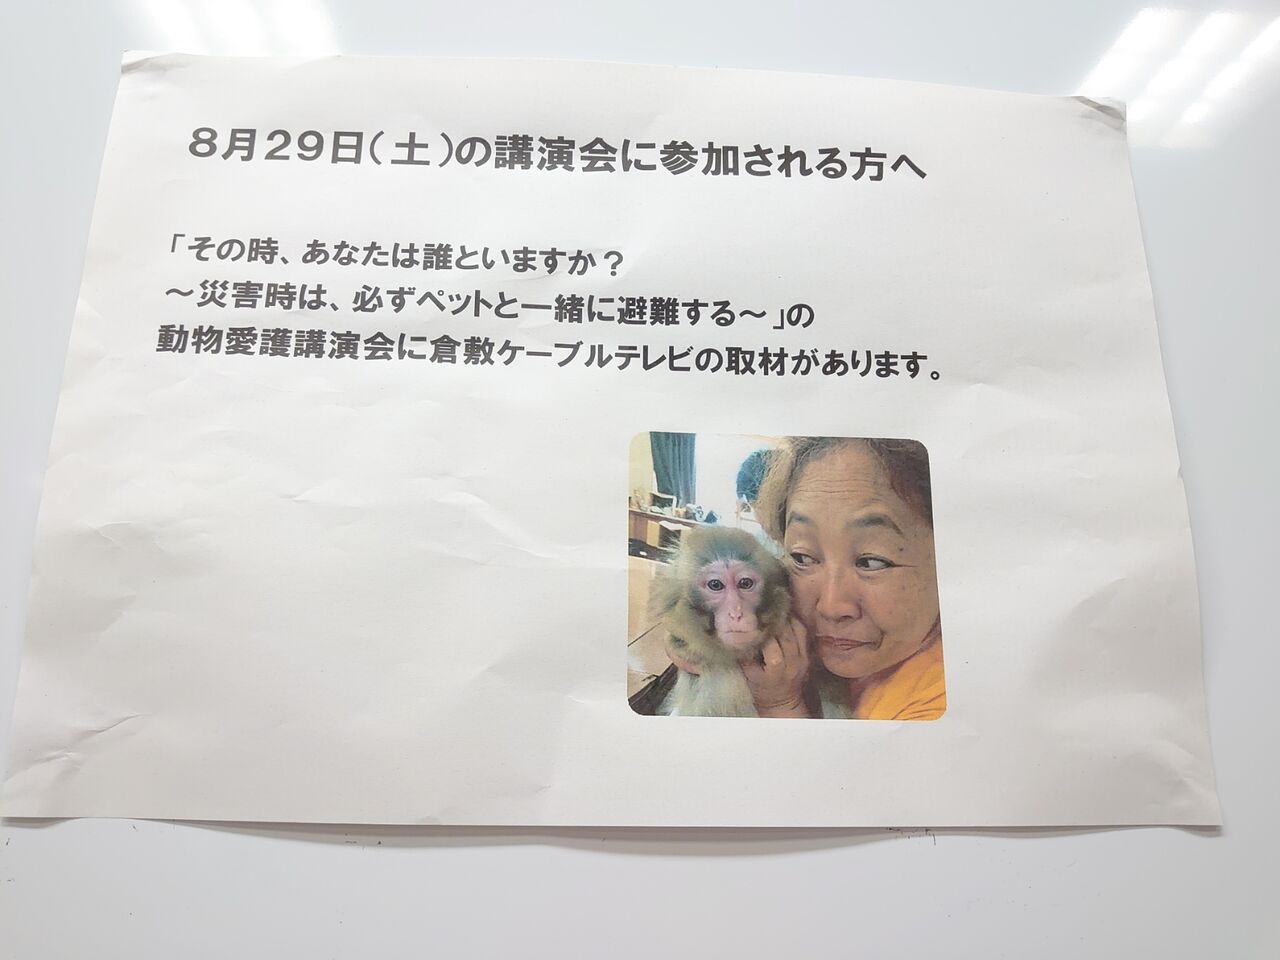 ８月２９日（土）の講演会に参加される方へ
「その時、あなたは誰といますか？
～災害時は、必ずペットと一緒に避難する～」の
動物愛護講演会に倉敷ケーブルテレビの取材があります。